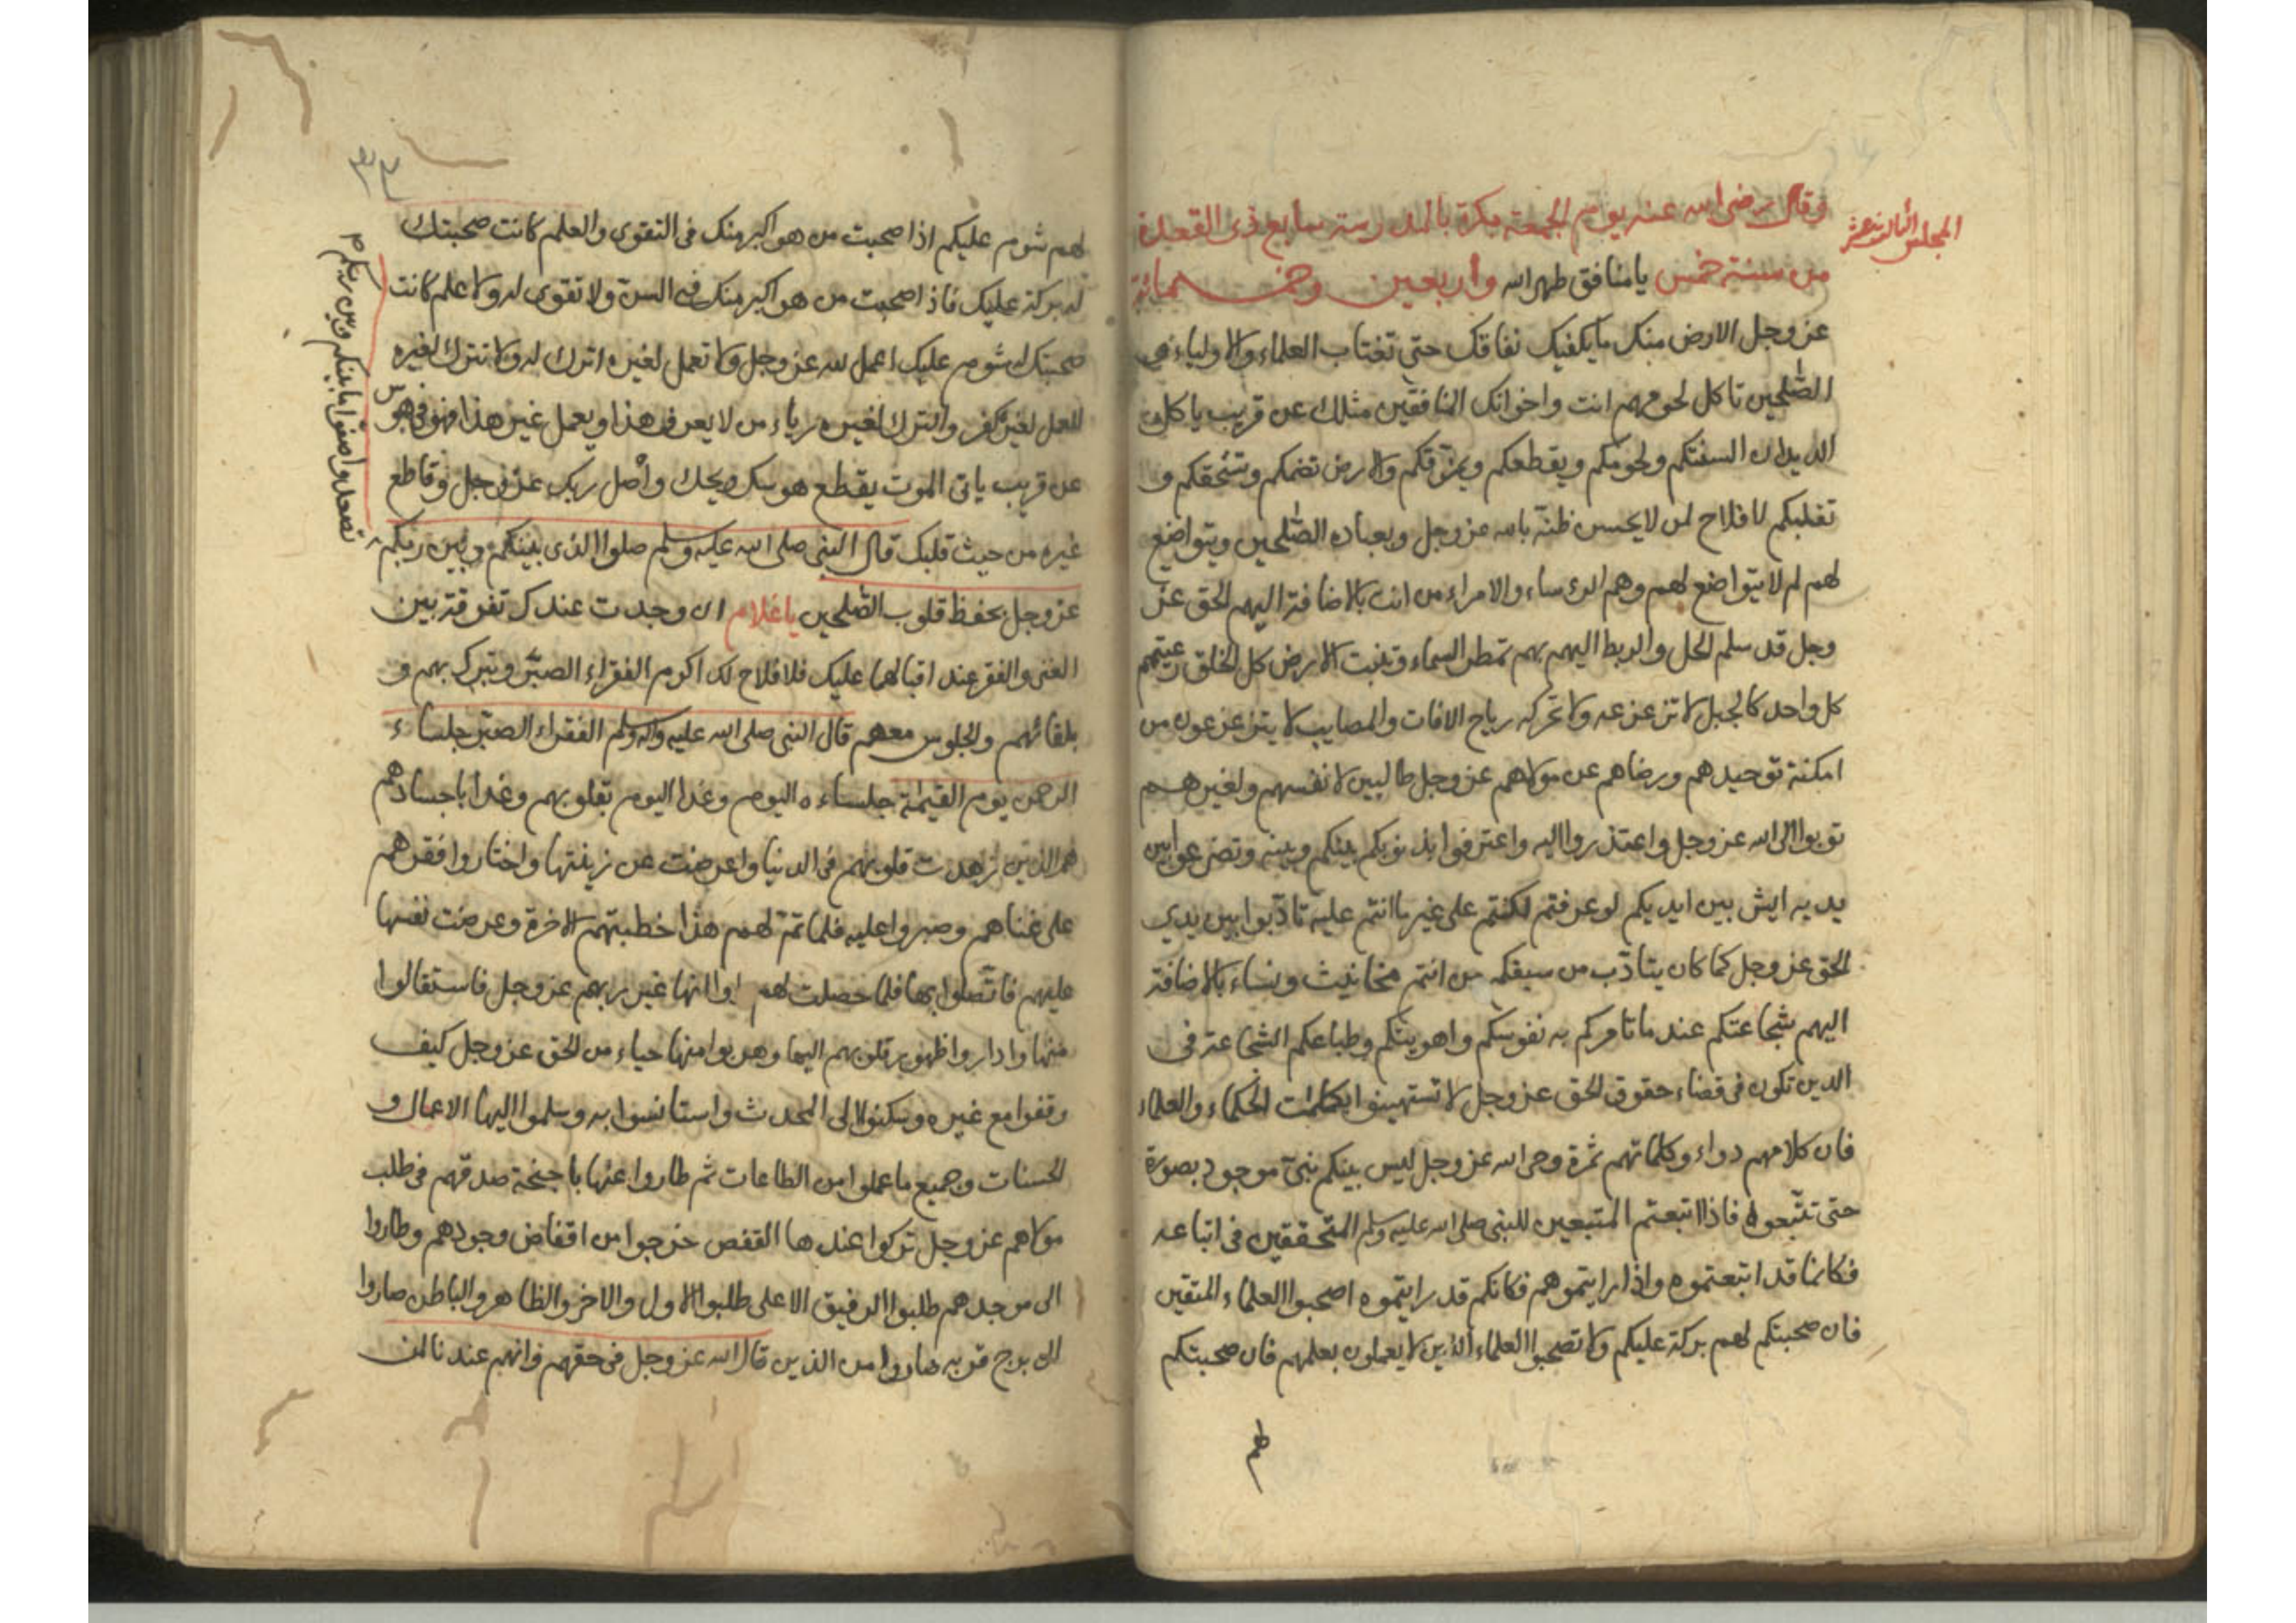 المجلس الثالث عشر
وقال رضي الله عنه يوم الجمعة بكرة بالمدرسة سابع ذى القعدة
من سنة خمس وأربعين وخمسمائة يا منافق طهر الله
عز وجل الارض منك ما يكفيك نفاقك حتى تغتاب العلماء والاولياء و
الصّٰلحين تاكل لحومهم انت واخوانك المنافقين مثلك عن قريب ياكل
الديدان السنتكم ولحومكم ويقطعكم ويمزّقكم والارض تضمكم وتسحقكم و
تقلبكم لا فلاح لمن لا يحسن ظنّه بالله عز وجل وبعباده الصّٰلحين ويتواضع
لهم لم لا يتواضع لهم وهم الرءساء والامراء من انت بالاضافة اليهم الحق عز
وجل قد سلم الحل والربط اليهم بهم تمطر السماء وتنبت الارض كل الخلق رعيتهم
كل واحد كالجبل لا تزعزعه ولا تحركه رياح الافات والمصايب لا يتزعزعون من
امكنة توحيدهم ورضاهم عن مولاهم عز وجل طالبين لانفسهم ولغيرهم
توبوا الى الله عز وجل واعتذروا اليه واعترفوا بذنوبكم بينكم وبينه وتضرعوا بين
يديه ايش بين ايديكم لو عرفتم لكنتم على غير ما انتم عليه تادّبوا بين يدي
الحق عز وجل كما كان يتادّب من سبقكم من انتم مخانيث ونساء بالاضافة
اليهم شجاعتكم عند ما تامركم به نفوسكم واهويتكم وطباعكم الشجاعة فى
الدين تكون فى قضاء حقوق الحق عز وجل لا تستهينوا بكلمات الحكماء والعلماء
فان كلامهم دواء وكلماتهم ثمرة وحى الله عز وجل ليس بينكم نبىّ موجود بصورة
حتى تتّبعوه فاذا اتبعتم المتبعين للنبى صلى الله عليه وسلم المتحققين فى اتباعه
فكانما قد اتبعتموه واذا رايتموهم فكانكم قد رايتموه اصحبوا العلماء المتقين
فان صحبتكم لهم بركة عليكم ولا تصحبوا العلماء الذين لا يعملون بعلمهم فان صحبتكم
لهم
لهم شوم عليكم اذا صحبت من هو اكبر منك فى التقوى والعلم كانت صحبتك
له بركة عليك فاذا صحبت من هو اكبر منك فى السن ولا تقوى له ولا علم كانت
صحبتك له شوم عليك اعمل لله عز وجل ولا تعمل لغيره اترك له ولا تترك لغيره
العمل لغيره كفر والترك لغيره رياء من لا يعرف هذا ويعمل غير هذا فهو فى هوس
عن قريب ياتى الموت يقطع هوسك ويحك واصل ربك عز وجل وقاطع
غيره من حيث قلبك قال النبى صلى الله عليه وسلم صلوا الذى بينكم وبين ربكم
تسعدوا صفوا ما بينكم وبين ربكم
عز وجل بحفظ قلوب الصّٰلحين يا غلام ان وجدت عندك تفرقة بين
الغنى والفقر عند اقبالهما عليك فلا فلاح لك اكرم الفقراء الصبّر وتبرك بهم و
بلقائهم والجلوس معهم قال النبى صلى الله عليه واله وسلم الفقراء الصبّر جلساء
الرحمن يوم القيٰمة جلساءه اليوم وغدا اليوم بقلوبهم وغدا باجسادهم
هم الذين زهدت قلوبهم فى الدنيا واعرضت عن زينتها واختاروا فقرهم
على غناهم وصبروا عليه فلما تمّ لهم هذا خطبتهم الاخرة وعرضت نفسها
عليهم فاتّصلوا بها فلما حصلت لهم راوا انها غير ربهم عز وجل فاستقالوا
منها واداروا ظهور قلوبهم اليها وهربوا منها حياء من الحق عز وجل كيف
وقفوا مع غيره وسكنوا الى المحدث واستانسوا به وسلموا اليها الاعمال و
الحسنات وجميع ما عملوا من الطاعات ثم طاروا عنها باجنحة صدقهم فى طلب
مولاهم عز وجل تركوا عندها القفص خرجوا من اقفاص وجودهم وطاروا
الى موجدهم طلبوا الرفيق الاعلى طلبوا الاول والاخر والظاهر والباطن صاروا
الى برج قربه صاروا من الذين قال الله عز وجل فى حقهم وانهم عندنا لمن